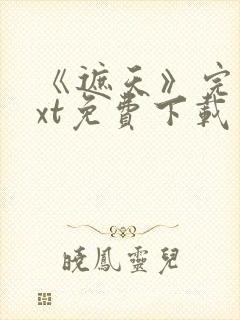 《遮天》完
xt免費下載
曉鳳靈兒